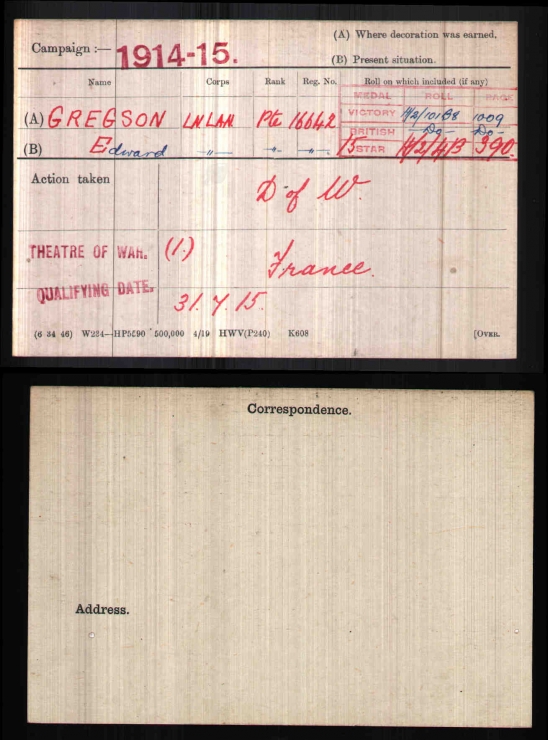 (A) Where decoration was earned.
Campaign :— 1914-15.
(B) Present situation.
Name Corps Rank Reg. No. Roll on which included (if any)
MEDAL ROLL PAGE
(A) GREGSON LN LAN Pte 16642 VICTORY 1009
BRITISH —Do— —Do—
(B) Edward —"— —"— —"— 15 STAR 390.
Action taken
D of W.
THEATRE OF WAR. (1.) France.
QUALIFYING DATE. 31.7.15.
(6 34 46) W234—HP5590 500,000 4/19 HWV(P240) K608 [OVER.
Correspondence.
Address.